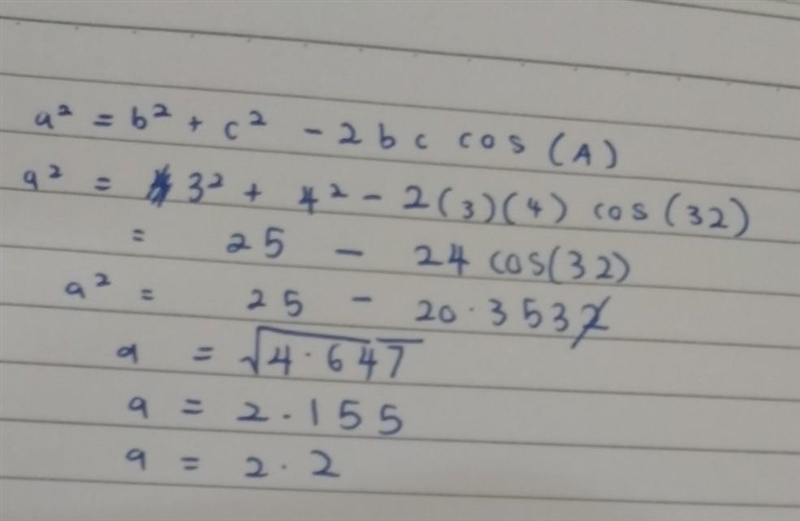 a² = b² + c² - 2bc cos (A)
a² = 3² + 4² - 2(3)(4) cos (32)
= 25 - 24 cos(32)
a² = 25 - 20.353
a = √4.647
a = 2.155
a = 2.2